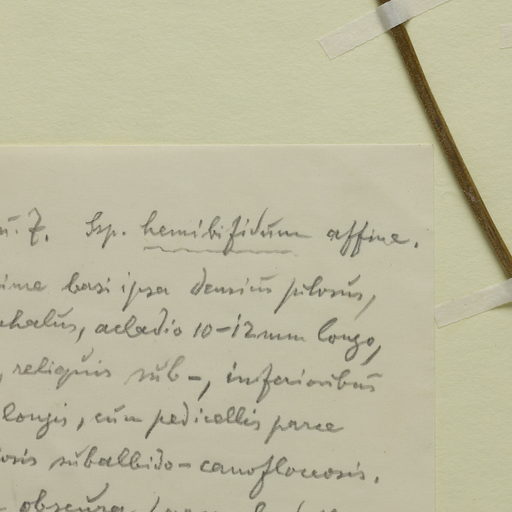 Z. Ssp. hemibifidum affine.
basi ipsa densius pilosus,
acladio 10-12 mm longo,
reliquis sub-, inferioribus
longis, cum pedicellis parce
subalbido-canofloccosis.
obscura